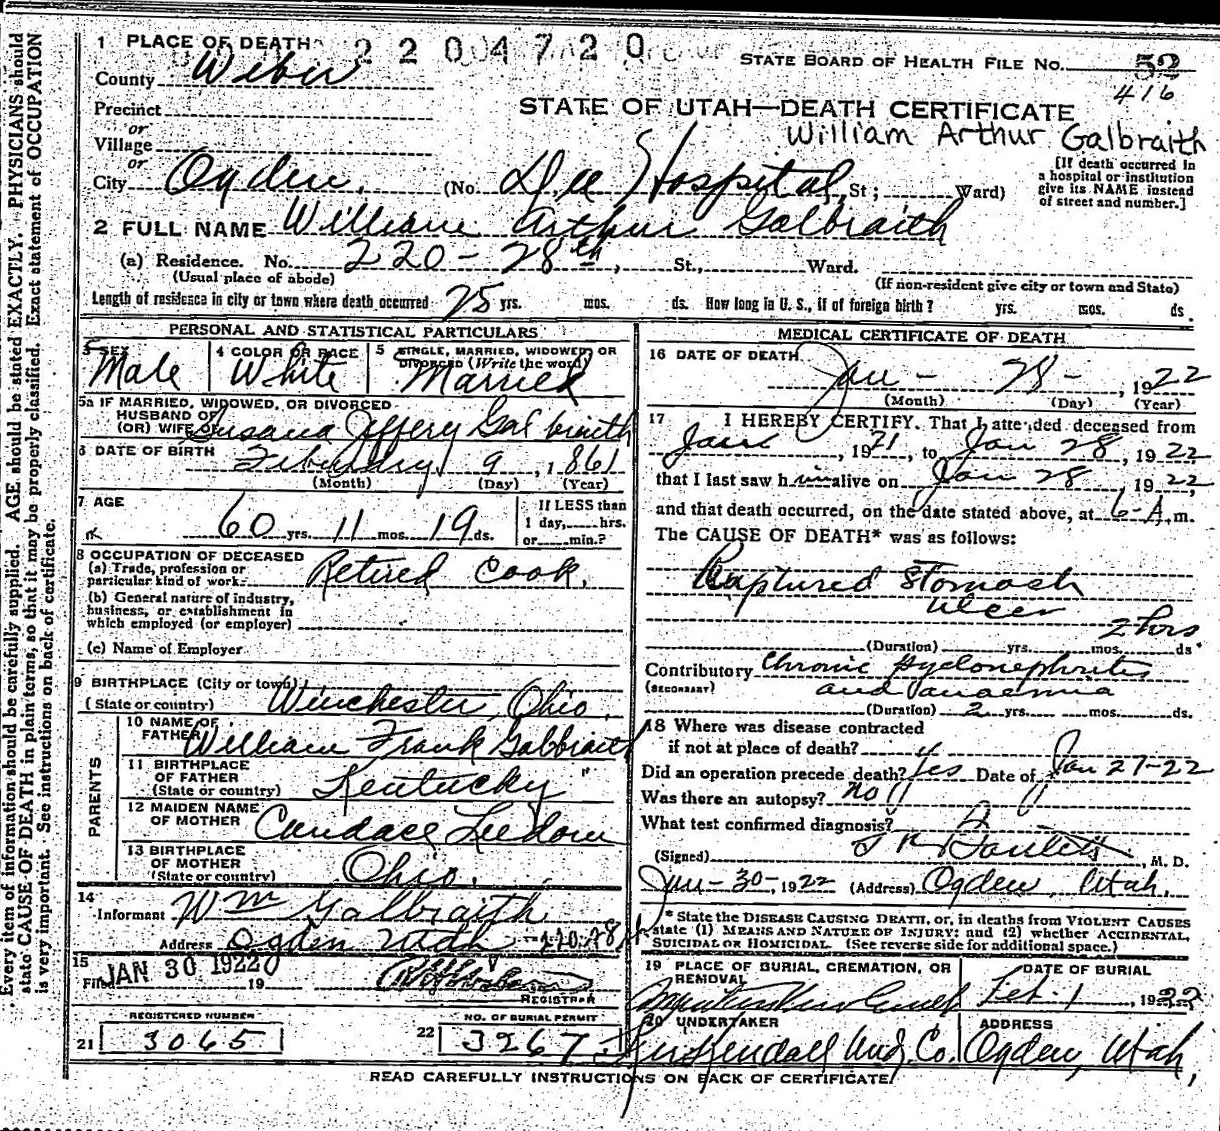 1 PLACE OF DEATH 2204720
STATE BOARD OF HEALTH FILE NO. 52
416
County Weber
Precinct
or
Village
or
City Ogden. (No. Dee Hospital, St; Ward)
STATE OF UTAH—DEATH CERTIFICATE
William Arthur Galbraith
[If death occurred in
a hospital or institution
give its NAME instead
of street and number.]
2 FULL NAME William Arthur Galbraith
(a) Residence. No. 220 - 28th, St., Ward.
(Usual place of abode) (If non-resident give city or town and State)
Length of residence in city or town where death occurred 25 yrs. mos. ds. How long in U. S., if of foreign birth? yrs. mos. ds.
PERSONAL AND STATISTICAL PARTICULARS
3 SEX Male
4 COLOR OR RACE White
5 SINGLE, MARRIED, WIDOWED, OR
DIVORCED (Write the word)
Married
5a IF MARRIED, WIDOWED, OR DIVORCED
HUSBAND OF
(OR) WIFE OF Susana Jeffery Galbraith
6 DATE OF BIRTH February 9, 1861
(Month) (Day) (Year)
7 AGE
60 yrs. 11 mos. 19 ds.
If LESS than
1 day, hrs.
or min.?
8 OCCUPATION OF DECEASED
(a) Trade, profession or
particular kind of work Retired Cook.
(b) General nature of industry,
business, or establishment in
which employed (or employer)
(c) Name of Employer
9 BIRTHPLACE (City or town)
(State or country) Winchester, Ohio.
PARENTS
10 NAME OF
FATHER William Frank Galbraith
11 BIRTHPLACE
OF FATHER
(State or country) Kentucky
12 MAIDEN NAME
OF MOTHER Candace Leedom
13 BIRTHPLACE
OF MOTHER
(State or country) Ohio.
14
Informant Wm Galbraith
Address Ogden Utah - 220-28 st
15
Filed JAN 30 1922 19
REGISTRAR
REGISTERED NUMBER
21 3065
NO. OF BURIAL PERMIT
22 3267
MEDICAL CERTIFICATE OF DEATH
16 DATE OF DEATH
Jan - 28 -, 1922
(Month) (Day) (Year)
17 I HEREBY CERTIFY. That I attended deceased from
, 1921, to Jan 28, 1922
that I last saw him alive on Jan 28, 1922,
and that death occurred, on the date stated above, at 6-A.m.
The CAUSE OF DEATH* was as follows:
Ruptured Stomach
Ulcer
2 hrs
(Duration) yrs. mos. ds.
Contributory Chronic pyelonephritis
(SECONDARY) and anaemia
(Duration) 2 yrs. mos. ds.
18 Where was disease contracted
if not at place of death?
Did an operation precede death? Yes Date of Jan 27-22
Was there an autopsy? no
What test confirmed diagnosis?
(Signed) , M. D.
Jan - 30 -, 1922 (Address) Ogden, Utah.
* State the DISEASE CAUSING DEATH, or, in deaths from VIOLENT CAUSES
state (1) MEANS AND NATURE OF INJURY; and (2) whether ACCIDENTAL,
SUICIDAL OR HOMICIDAL. (See reverse side for additional space.)
19 PLACE OF BURIAL, CREMATION, OR
REMOVAL
DATE OF BURIAL
Feb. 1, 1922
20 UNDERTAKER
Kirkendall Und. Co.
ADDRESS
Ogden, Utah,
READ CAREFULLY INSTRUCTIONS ON BACK OF CERTIFICATE
Every item of information should be carefully supplied. AGE should be stated EXACTLY. PHYSICIANS should
state CAUSE OF DEATH in plain terms, so that it may be properly classified. Exact statement of OCCUPATION
is very important. See instructions on back of certificate.